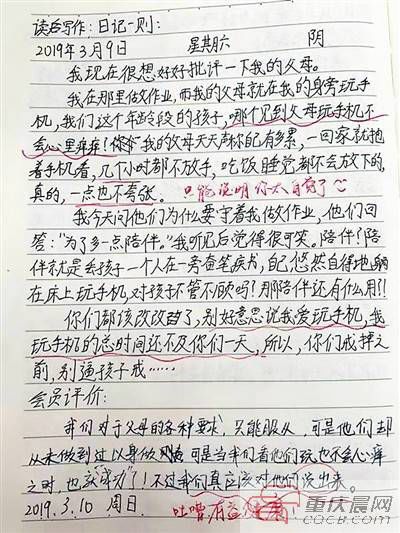 读后写作：日记一则：
2019年3月9日 星期六 阴
我现在很想好好批评一下我的父母。
我在那里做作业，而我的父母就在我的身旁玩手
机，我们这个年龄段的孩子，哪个见到父母玩手机不
会心里痒痒！你爷我的父母天天都说自己有多累，一回家就抱
着手机看，几个小时都不放手，吃饭睡觉都不会放下的
真的，一点也不夸张。只能说明你太自觉了
我今天问他们为什么要守着我做作业，他们回
答：“为了多一点陪伴。”我听见后觉得很可笑。陪伴！陪
伴就是丢孩子一个人在一旁奋笔疾书，自己悠然自得地躺
在床上玩手机，对孩子不管不顾吗！那陪伴还有什么用！！
你们都该改改了，别好意思说我爱玩手机，我
玩手机的总时间还不及你们一天，所以，你们戒掉之
前，别逼孩子戒……
会员评价：
我们对于父母的各种要求，只能服从，可是他们却
从未做到过以身做则 可是当我们看他们玩也不会心痒
之时，也就“成功”了！不过我们真应该对他们说出来。
2019.3.10 周日 吐嘈有益健康
重庆晨网
CQCB.COM